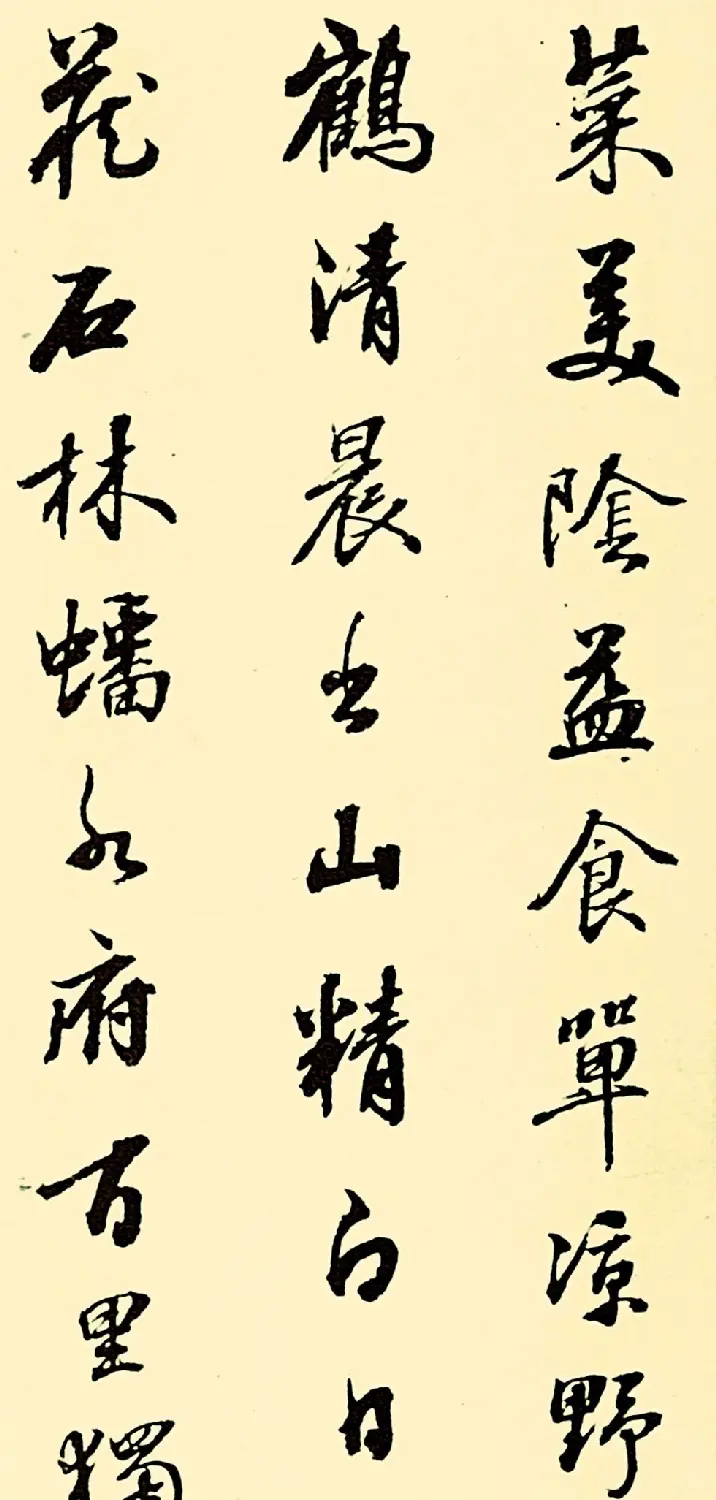 菜美陰益食單凉野
鶴清晨出山精白日
藏石林蟠水府百里獨